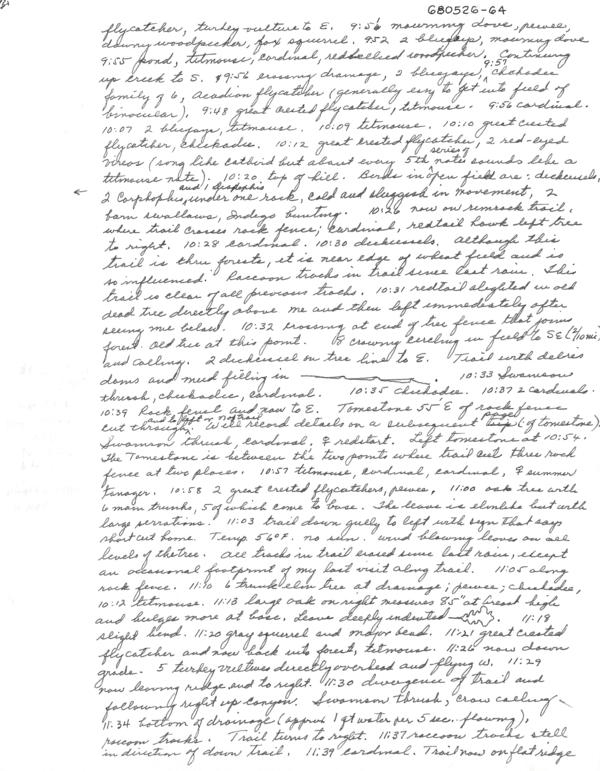 680526-64
flycatcher, turkey vulture to E. 9:56 mourning dove, pewee,
downy woodpecker, fox squirrel. 952 2 bluejays, mourning dove
9:55 pond, titmouse, cardinal, redbellied woodpecker. Continuing
up creek to S. 9:56 crossing drainage, 2 bluejays, 9:57 Chickadee
family of 6, acadian flycatcher (generally easy to get into field of
binocular). 9:48 great crested flycatcher, titmouse. 9:56 cardinal.
10:07 2 bluejays, titmouse. 10:09 titmouse. 10:10 great crested
flycatcher, chickadee. 10:12 great crested flycatcher, 2 red-eyed
vireos (song like catbird but about every 5th series of notes sounds like a
titmouse note). 10:20 top of hill. Birds in open field are: dickcissels,
2 Carphophis, and 1 Diadophis under one rock, cold and sluggish in movement, 2
barn swallows, Indigo bunting. 10:26 now on rimrock trail,
where trail crosses rock fence; cardinal, redtail hawk left tree
to right. 10:28 cardinal. 10:30 dickcissels. Although this
trail is thru forests, it is near edge of wheat field and is
so influenced. Raccoon tracks in trail since last rain. This
trail is clear of all previous tracks. 10:31 redtail alighted in old
dead tree directly above me and then left immediately after
seeing me below. 10:32 crossing at end of tree fence that joins
forest. Old tree at this point. 8 crows circling in field to SE (2/10 mi)
and calling. 2 dickcissel on tree line to E. Trail with debris
dams and mud filling in. 10:33 Swainson
thrush, chickadee, cardinal. 10:35 Chickadee. 10:37 2 cardinals.
10:39 Rock fence and row to E. Tomestone 55' E of rock fence
cut through and to left of trail. Will record details on a subsequent page (of tomestone).
Swainson thrush, cardinal, ♀ redstart. Left tomestone at 10:54.
The Tomestone is between the two points where trail cut thru rock
fence at two places. 10:57 titmouse, cardinal, cardinal, ♀ summer
tanager. 10:58 2 great crested flycatchers, pewee, 11:00 oak tree with
6 main trunks, 5 of which come to base. The leave is elmlike but with
large serrations. 11:03 trail down gully to left with sign that says
short cut home. Temp. 56°F. no sun. wind blowing leaves on all
levels of the tree. All tracks in trail erased since last rain, except
an occasional footprint of my last visit along trail. 11:05 along
rock fence. 11:10 6 trunk elm tree at drainage; pewee; chickadee,
10:12 titmouse. 11:13 large oak on right measures 85" at breast high
and bulges more at base. Leave deeply indented. 11:18
sliged bend. 11:20 gray squirrel and major bend. 11:21 great crested
flycatcher and now back into forest, titmouse. 11:26 now down
grade. 5 turkey vultures directly overhead and flying W. 11:29
now leaving ridge and to right. 11:30 divergence of trail and
following right up canyon. Swainson thrush, crow calling
11:34 bottom of drainage (approx 1 qt water per 5 sec. flowing),
raccoon tracks. Trail turns to right. 11:37 raccoon tracks still
in direction of down trail. 11:39 cardinal. Trail now on flat ridge